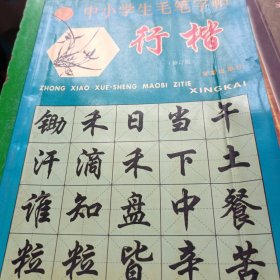 中小学生毛笔字帖
行楷
(修订版)
ZHONG XIAO XUE·SHENG MAOBI ZITIE
XINGKAI
锄禾日当午
汗滴禾下土
谁知盘中餐
粒粒皆辛苦